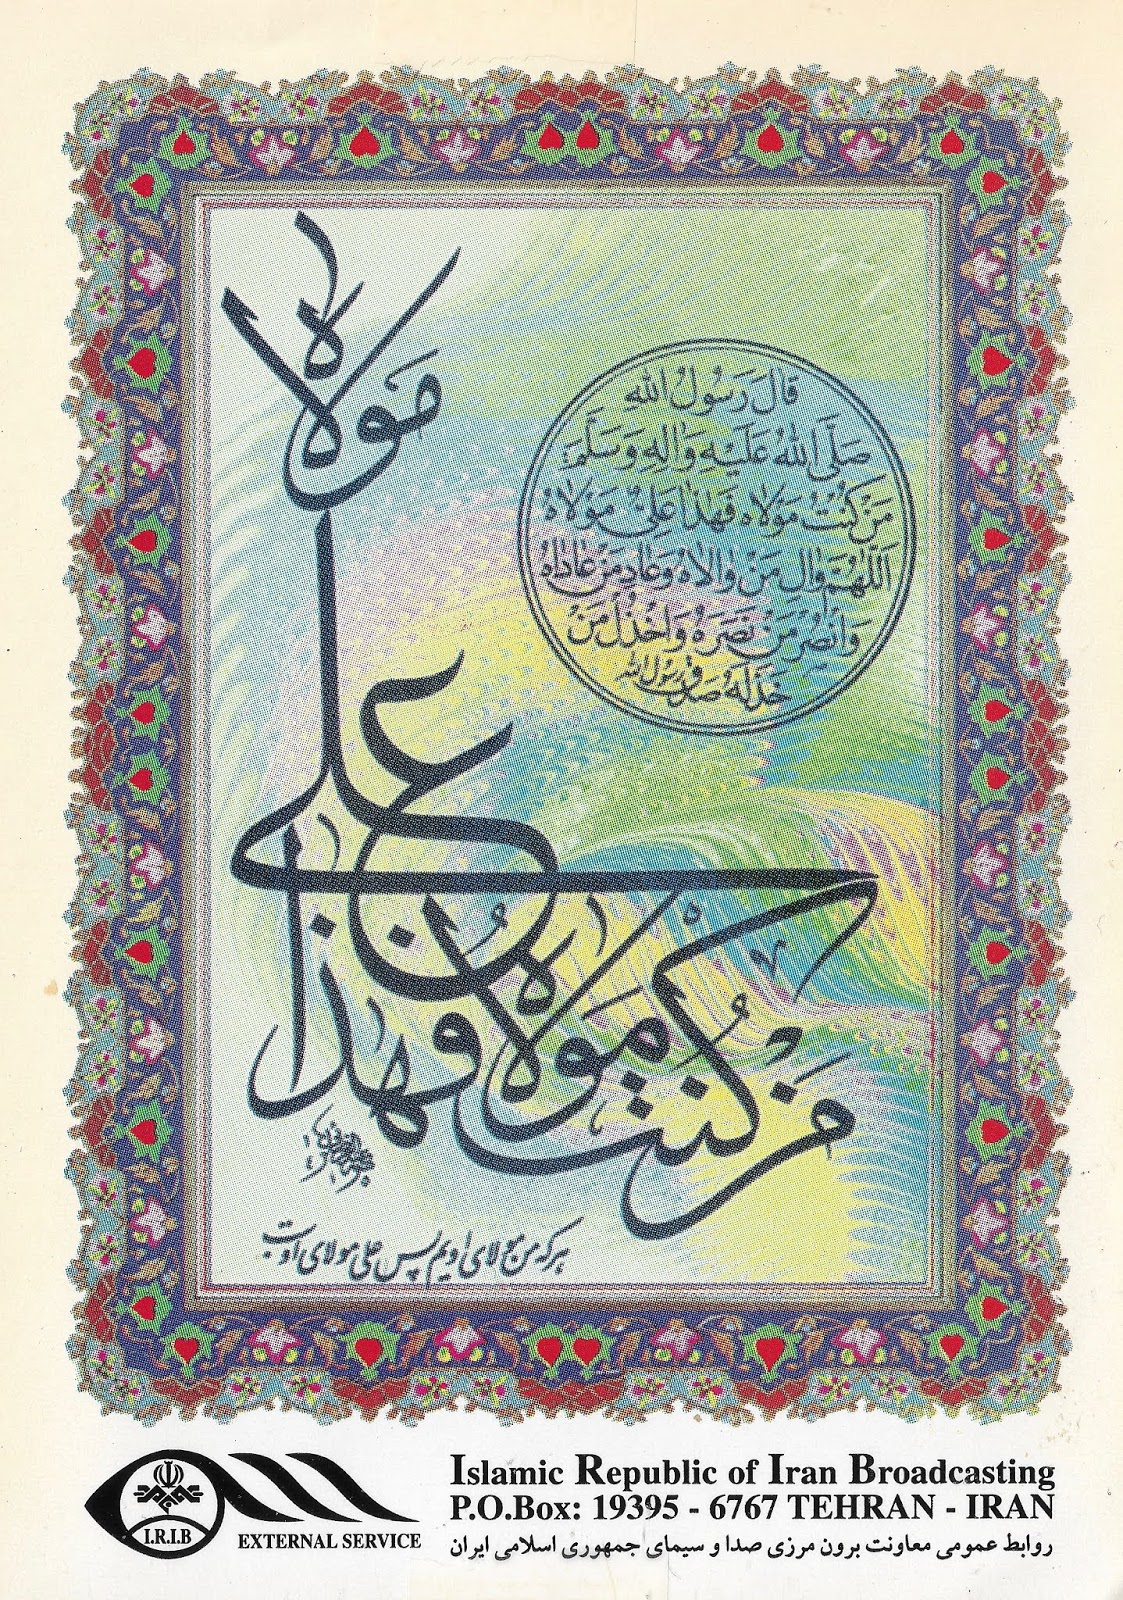 قَالَ رَسُولُ اللهِ
صَلَّى اللهُ عَلَيْهِ وَاٰلِهِ وَسَلَّمَ
مَنْ كُنْتُ مَوْلَاهُ فَهٰذَا عَلِىٌّ مَوْلَاهُ
اَللّٰهُمَّ وَالِ مَنْ وَالَاهُ وَعَادِ مَنْ عَادَاهُ
وَانْصُرْ مَنْ نَصَرَهُ وَاخْذُلْ مَنْ
خَذَلَهُ صَدَقَ رَسُولُ اللهِ
من كنت مولاه فهذا على مولاه
هر که من مولای اویم پس علی مولای اوست
I.R.I.B
EXTERNAL SERVICE
Islamic Republic of Iran Broadcasting
P.O.Box: 19395 - 6767 TEHRAN - IRAN
روابط عمومی معاونت برون مرزی صدا و سیمای جمهوری اسلامی ایران